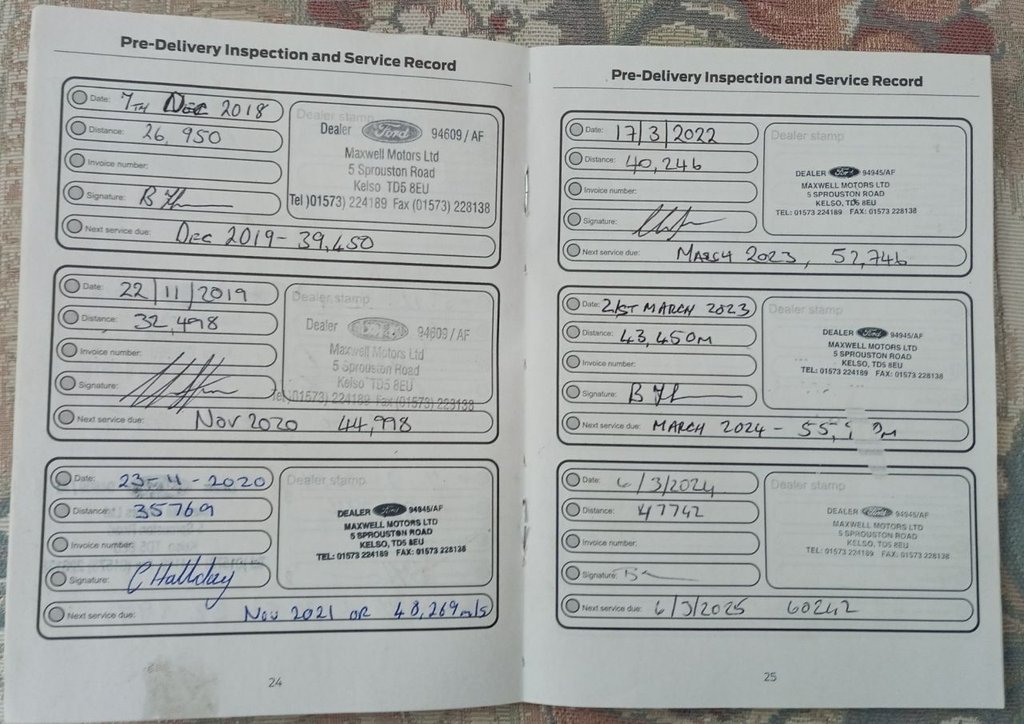 Pre-Delivery Inspection and Service Record
Date: 7TH DEC 2018
Distance: 26,950
Invoice number:
Signature: B
Next service due: DEC 2019 - 39,450
Dealer stamp
Dealer Ford 94609/AF
Maxwell Motors Ltd
5 Sprouston Road
Kelso TD5 8EU
Tel )01573) 224189 Fax (01573) 228138
Date: 22/11/2019
Distance: 32,498
Invoice number:
Signature:
Next service due: NOV 2020 44,998
Dealer stamp
Dealer Ford 94609/AF
Maxwell Motors Ltd
5 Sprouston Road
Kelso TD5 8EU
Tel )01573) 224189 Fax (01573) 228138
Date: 23-11-2020
Distance: 35769
Invoice number:
Signature: C Halliday
Next service due: Nov 2021 OR 48,269 mls
Dealer stamp
DEALER Ford 94945/AF
MAXWELL MOTORS LTD
5 SPROUSTON ROAD
KELSO, TD5 8EU
TEL: 01573 224189 FAX: 01573 228138
24
Pre-Delivery Inspection and Service Record
Date: 17/3/2022
Distance: 40,246
Invoice number:
Signature:
Next service due: MARCH 2023, 52,746
Dealer stamp
DEALER Ford 94945/AF
MAXWELL MOTORS LTD
5 SPROUSTON ROAD
KELSO, TD5 8EU
TEL: 01573 224189 FAX: 01573 228138
Date: 21ST MARCH 2023
Distance: 43,450M
Invoice number:
Signature: B
Next service due: MARCH 2024 - 55,
Dealer stamp
DEALER Ford 94945/AF
MAXWELL MOTORS LTD
5 SPROUSTON ROAD
KELSO, TD5 8EU
TEL: 01573 224189 FAX: 01573 228138
Date: 6/3/2024
Distance: 47742
Invoice number:
Signature:
Next service due: 6/3/2025 60242
Dealer stamp
DEALER Ford 94945/AF
MAXWELL MOTORS LTD
5 SPROUSTON ROAD
KELSO, TD5 8EU
TEL: 01573 224189 FAX: 01573 228138
25